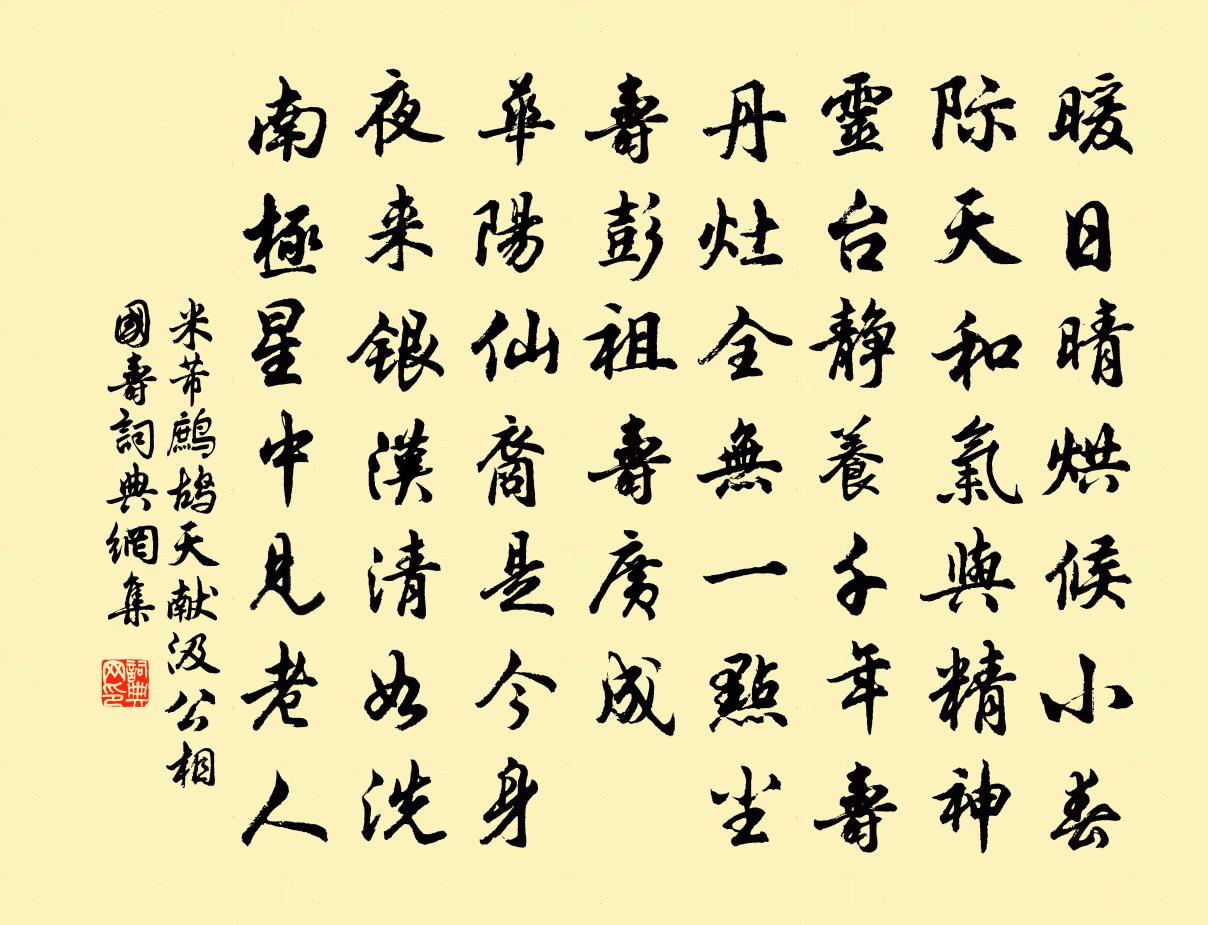 暖日晴烘候小春
际天和氣與精神
靈台静養千年壽
丹灶全無一點尘
壽彭祖壽廣成
華陽仙裔是今身
夜来銀漢清如洗
南極星中見老人
米芾鷓鴣天献汲公相
國壽詞典網集
詞典网印